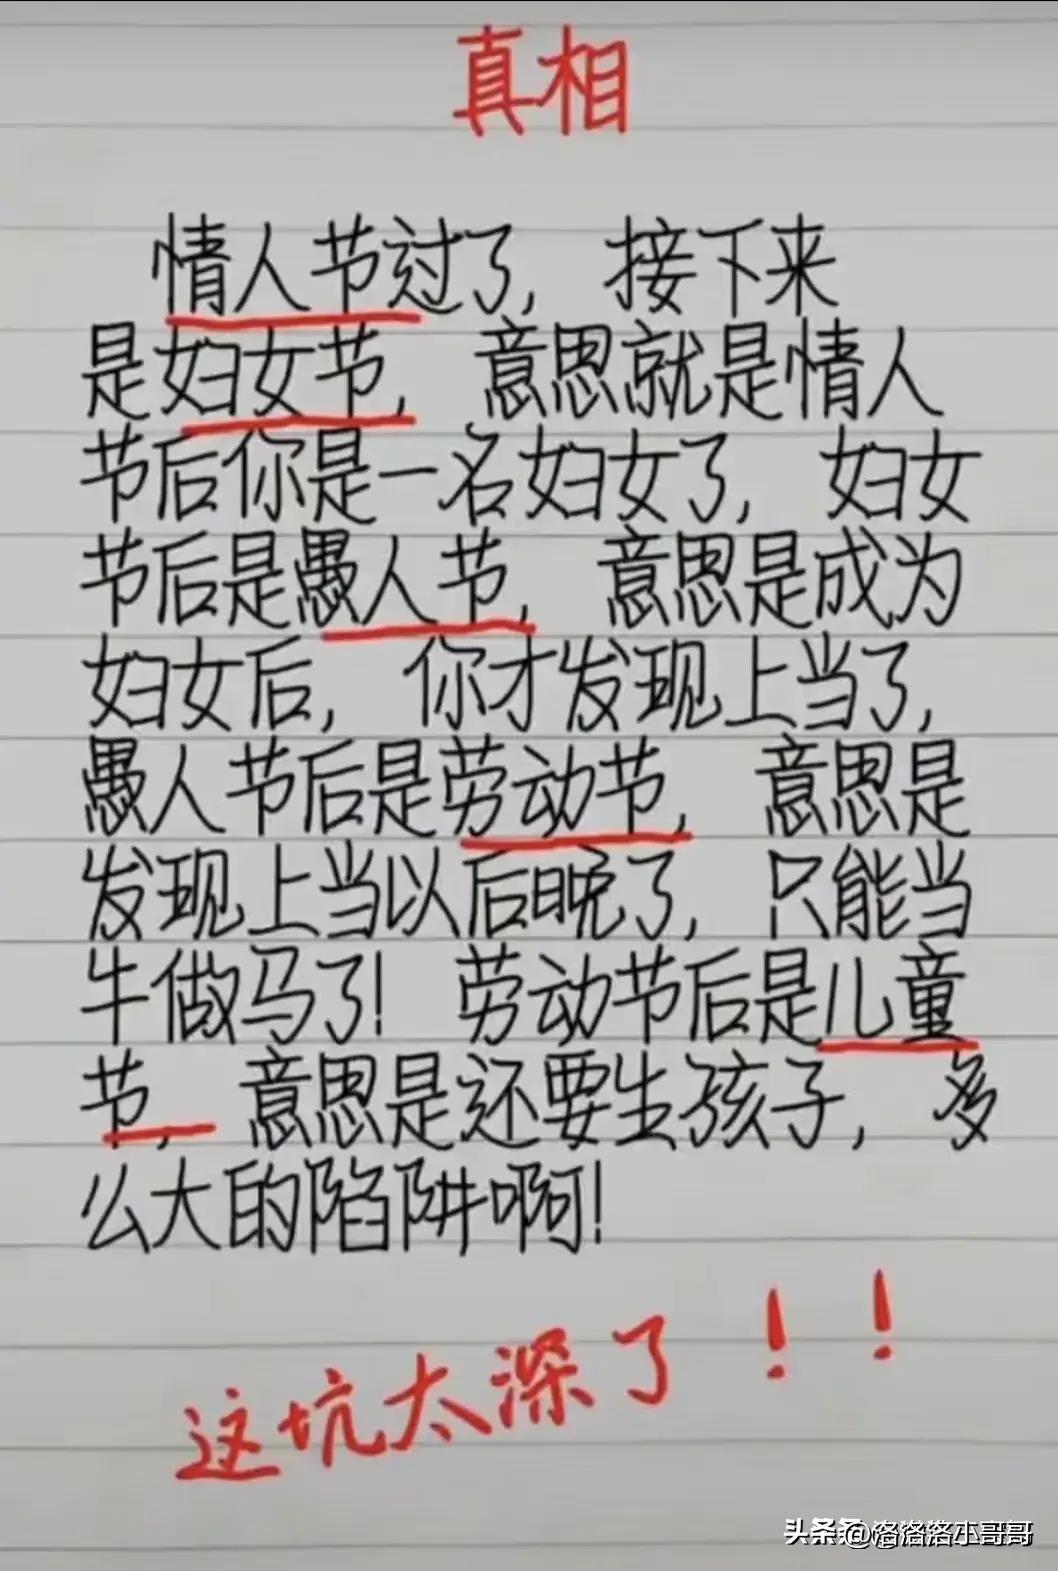 真相
情人节过了, 接下来
是妇女节, 意思就是情人
节后你是一名妇女了, 妇女
节后是愚人节, 意思是成为
妇女后, 你才发现上当了,
愚人节后是劳动节, 意思是
发现上当以后晚了, 只能当
牛做马了! 劳动节后是儿童
节, 意思是还要生孩子, 多
么大的陷阱啊!
这坑太深了!!
头条 @洛洛洛小哥哥